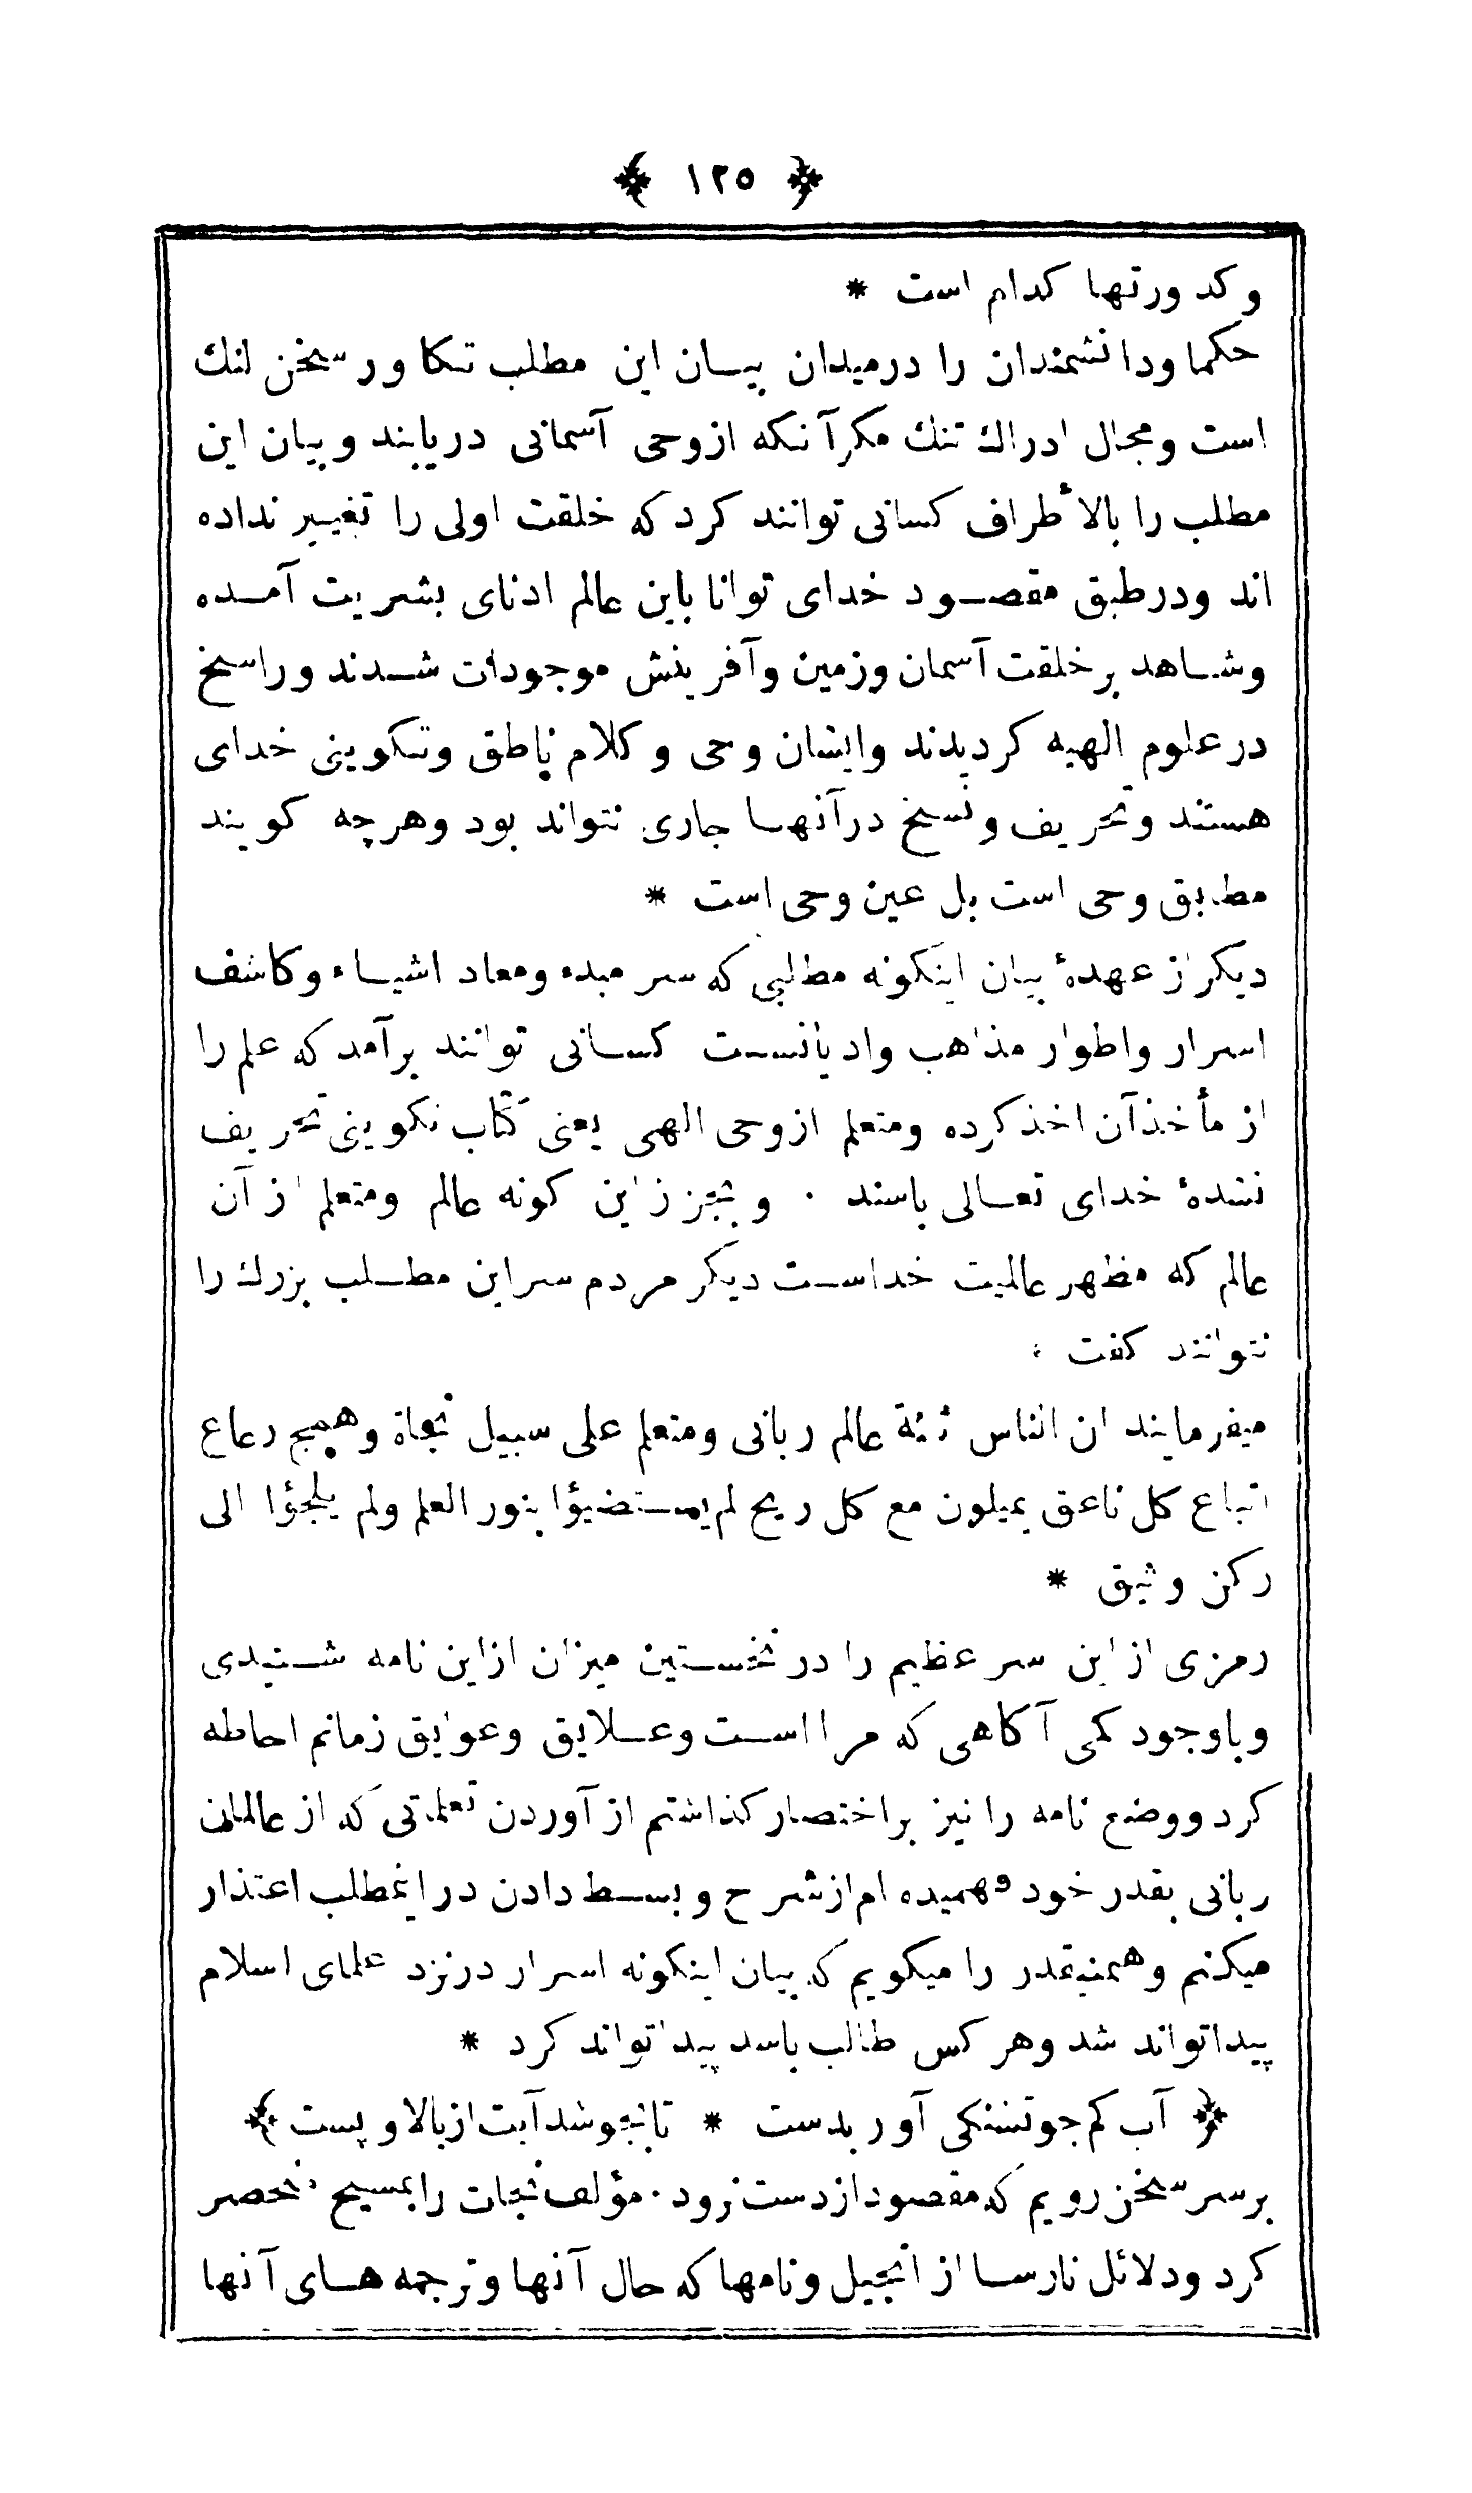 ﴿ ١٢٥ ﴾
وكدورتها كدام است *
حكما ودانشمندان را درميدان بيان اين مطلب تكاور سخن لنك
است ومجال ادراك تنك مكر آنكه ازوحى آسمانى دريابند وبيان اين
مطلب را بالأطراف كسانى توانند كرد كه خلقت اولى را تغيير نداده
اند ودرطبق مقصود خداى توانا باين عالم ادناى بشريت آمده
وشاهد برخلقت آسمان وزمين وآفرينش موجودات شدند وراسخ
در علوم الهيه كرديدند وايشان وحى وكلام ناطق وتكوينى خداى
هستند وتحريف ونسخ درآنها جارى نتواند بود وهرچه كويند
مطابق وحى است بل عين وحى است *
ديكر از عهدهٔ بيان اينكونه مطالبى كه سر مبدء ومعاد اشياء وكاشف
اسرار واطوار مذاهب واديانست كسانى توانند برآمد كه علم را
از مأخذ آن اخذ كرده ومتعلم ازوحى الهى يعنى كتاب تكوينى تحريف
نشدهٔ خداى تعالى باسند . وبجز زاين كونه عالم ومتعلم از آن
عالم كه مظهر عالميت خداست ديكر مردم سراين مطلب بزرك را
نتوانند كفت .
ميفرمايند ان الناس ثلثة عالم ربانى ومتعلم على سبيل نجاة وهمج رعاع
اتباع كل ناعق يميلون مع كل ريح لم يستضيؤا بنور العلم ولم يلجؤا الى
ركن وثيق *
رمزى از اين سر عظيم را در نخستين ميزان ازاين نامه شنيدى
وباوجود كمى آكاهى كه مرا است وعلايق وعوايق زمانم احاطه
كرد ووضع نامه را نيز براختصار كذاشتم از آوردن تعلماتى كه از عالمان
ربانى بقدر خود فهميده ام ازشرح وبسط دادن دراينمطلب اعتذار
ميكنم وهمينقدر را ميكويم كه بيان اينكونه اسرار درنزد علماى اسلام
پيداتواند شد وهركس طالب باسد پيداتواند كرد *
﴿ آب كم جو تشنكى آور بدست * تابجوشد آبت از بالا وپست ﴾
برسر سخن رويم كه مقصود از دست نرود . مؤلف نجات را بمسيح منحصر
كرد ودلائل نارسا از انجيل ونامها كه حال آنها وترجمه هاى آنها